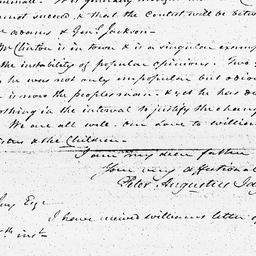 not succeed & that the contest will be betw
Adams & Genl. Jackson—
Mr Clinton is in town & is a singular examp
the instability of popular opinions. Two
he was not only unpopular but odiou
is now the peoples man— & yet he has do
nothing in the interval to justify the chang
We are all well. our Love to william
& the Children—
I am my dear father
Your very affectionat
Peter Augustus Ja
Jay Esqr
I have received williams letter of
th inst—